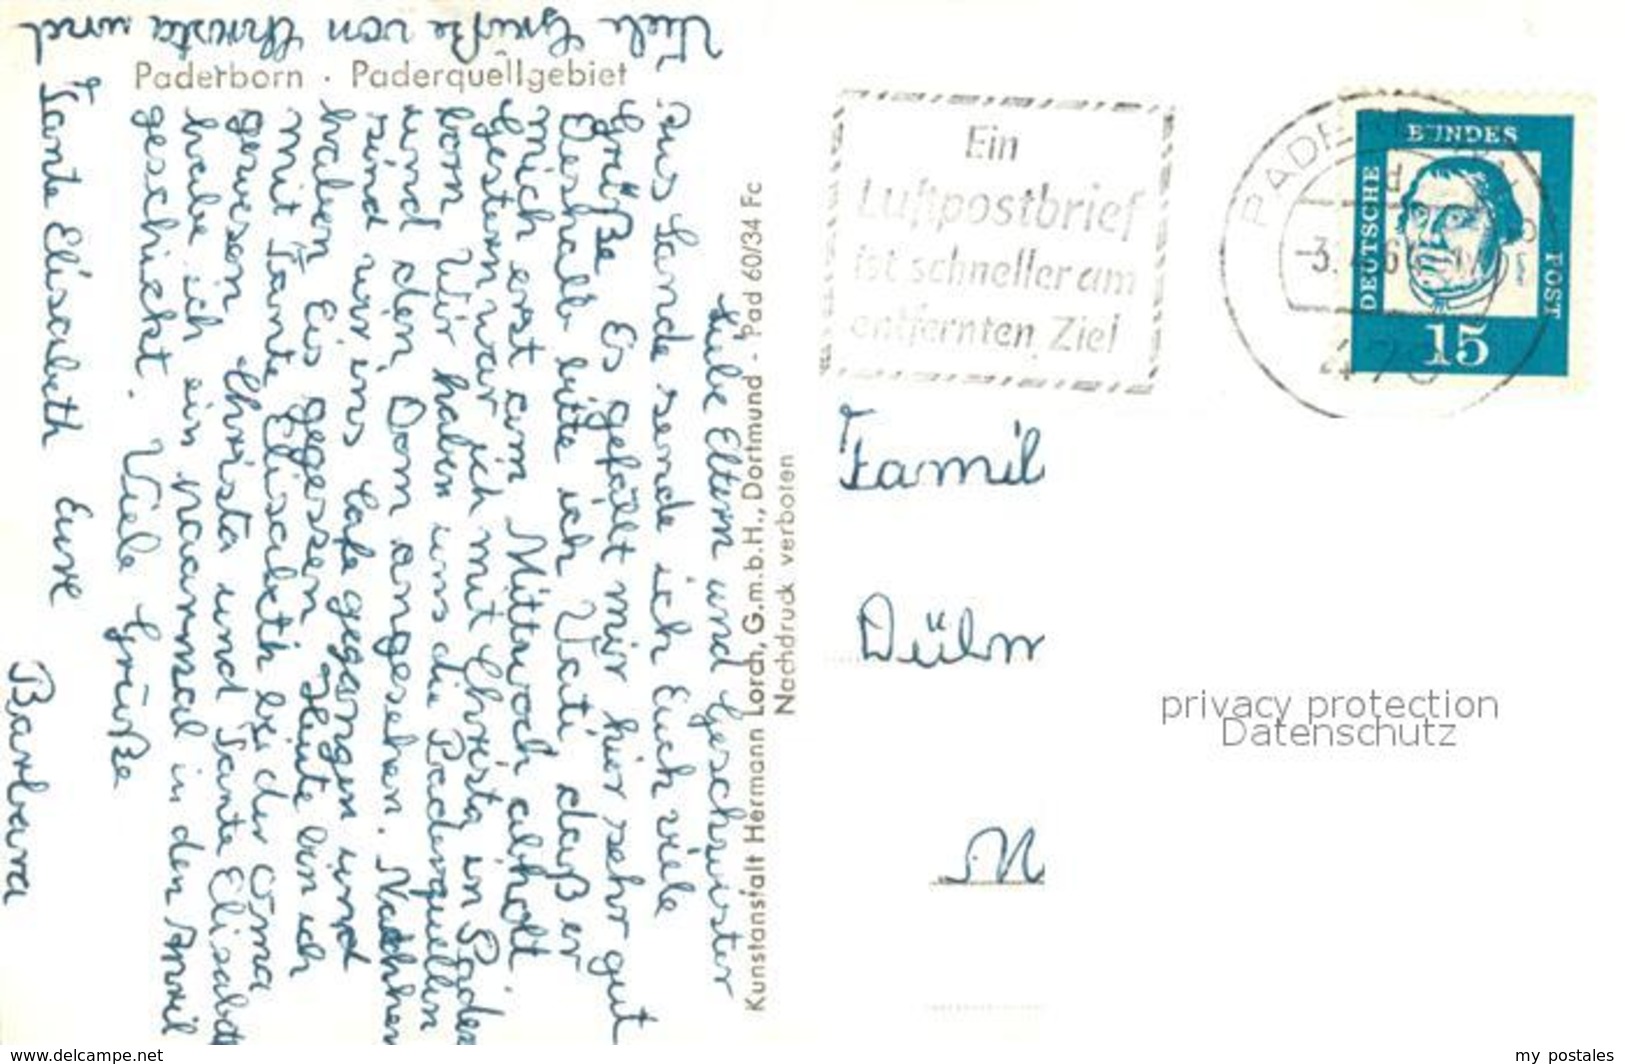 Paderborn · Paderquellgebiet
Liebe Eltern und Geschwister
Aus Lande sende ich Euch viele
Grüße. Es gefällt mir hier sehr gut
Deshalb bitte ich Vati, daß er
mich erst am Mittwoch abholt.
Gestern war ich mit Christa in Pader
born. Wir haben uns die Paderquellen
und den Dom angesehen. Nachher
sind wir ins Cafe gegangen und
haben Eis gegessen. Heute bin ich
mit Tante Elisabeth bei der Oma
gewesen. Christa und Tante Elisabeth
habe ich ein paarmal in den April
geschickt. Viele Grüße
Eure Barbara
Viele Grüße von Christa und
Tante Elisabeth
Kunstanstalt Hermann Lorch, G.m.b.H., Dortmund - Pad 60/34 Fc
Nachdruck verboten
Ein
Luftpostbrief
ist schneller am
entfernten Ziel
DEUTSCHE
BUNDES
POST
15
Famil
Dülm
privacy protection
Datenschutz
www.delcampe.net
my_postales